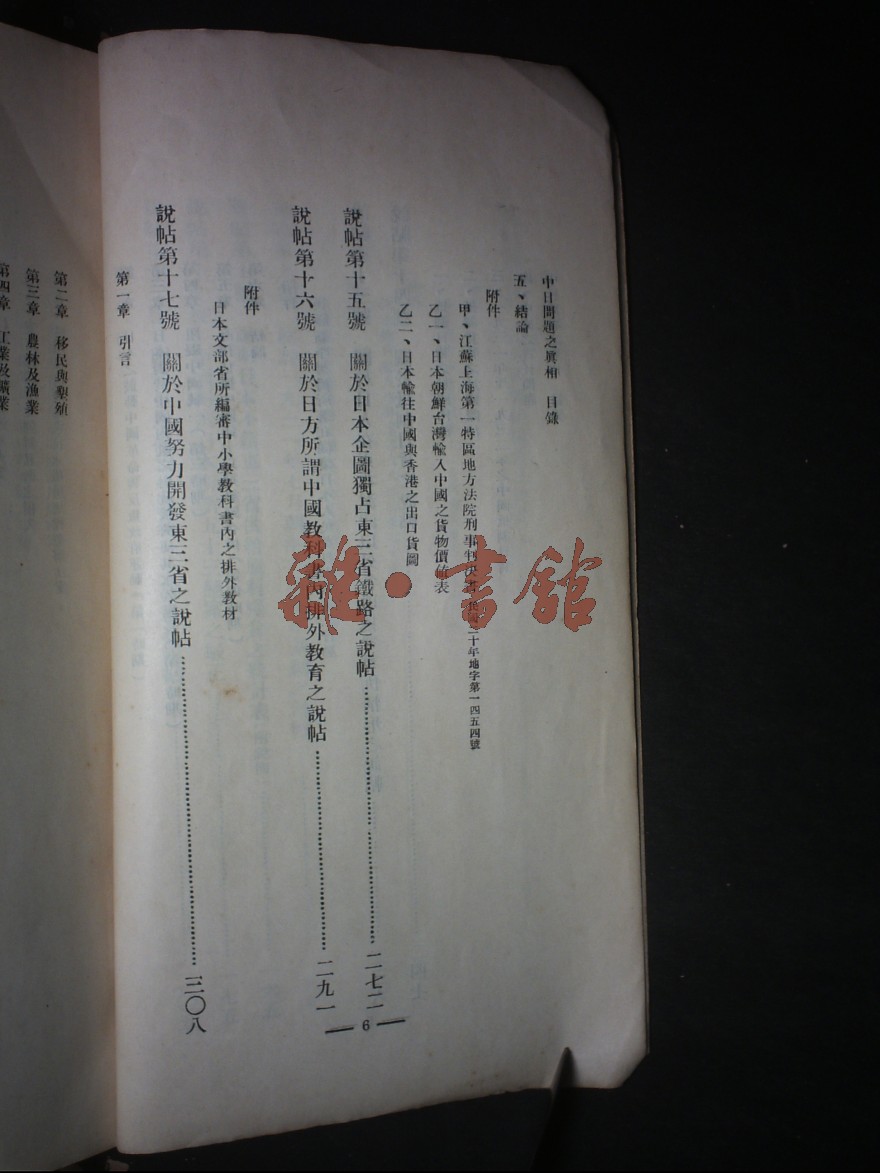 中日問題之眞相　目錄
五、結論
附件
甲、江蘇上海第一特區地方法院刑事判決書 二十年地字第一四五四號
乙一、日本朝鮮台灣輸入中國之貨物價值表
乙二、日本輸往中國與香港之出口貨圖
說帖第十五號　關於日本企圖獨占東三省鐵路之說帖………二七二
說帖第十六號　關於日方所謂中國教科書內排外教育之說帖………二九一
附件
日本文部省所編審中小學教科書內之排外教材
說帖第十七號　關於中國努力開發東三省之說帖………三〇八
第一章　引言
第二章　移民與墾殖
第三章　農林及漁業
第四章　工業及鑛業
— 6 —
雜·書館